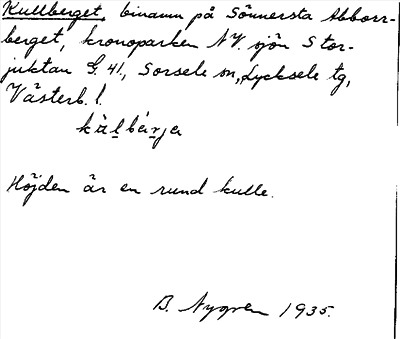 Kullberget, binamn på Sönnersta Abborr-
berget, kronoparken NV. sjön Stor-
juktan G. 41, Sorsele sn, Lycksele tg,
Västerb. l.
kȧl̠bär̠ja
Höjden är en rund kulle.
B. Nygren 1935.